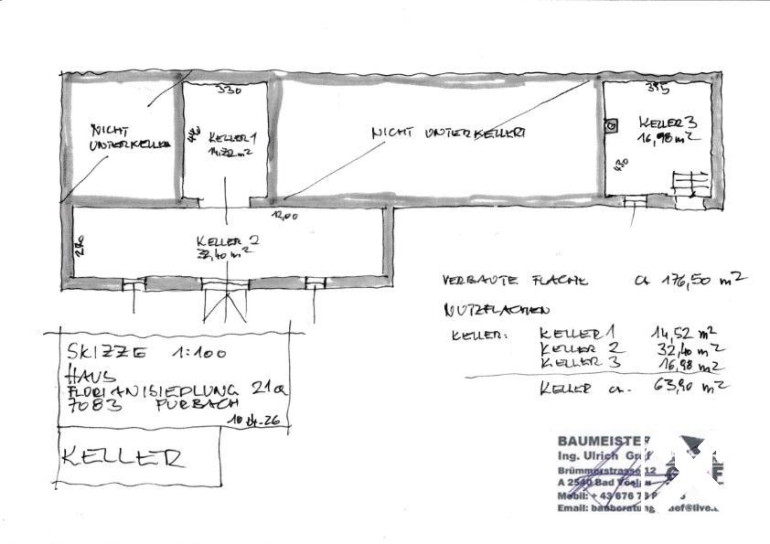 330
395
NICHT
UNTERKELLER
KELLER 1
NICHT UNTERKELLERT
KELLER 3
16,98 m²
430
12,00
KELLER 2
32,40 m²
270
VERBAUTE FLÄCHE ca 176,50 m²
NUTZFLÄCHEN
KELLER: KELLER 1 14,52 m²
KELLER 2 32,40 m²
KELLER 3 16,98 m²
KELLER ca. 63,90 m²
SKIZZE 1:100
HAUS
FLORIANISIEDLUNG 21a
7083 PURBACH
KELLER
BAUMEISTE
Ing. Ulrich
Brümmerstrasse 12
A 2540 Bad
Mobil: + 43 676
Email: